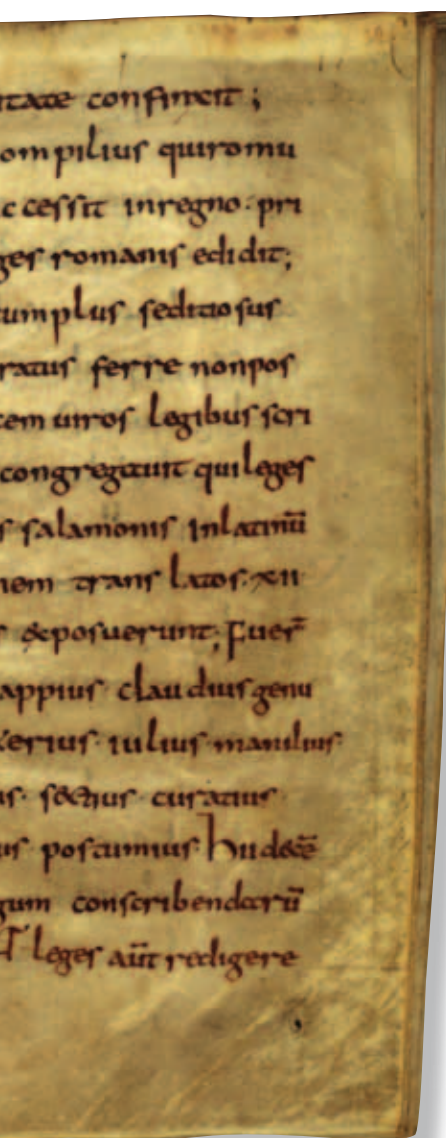 tate confinxit ;
ompilius quiromu
ccessit inregno· pri
ges romanis edidit;
um plus seditiosus
ratus ferre nonpos
cem uiros legibus scri
congregauit qui leges
s salamonis inlatinū
nem translatos· xii·
s exposuerunt; Fuer̄
appius· claudius genu
terius· iulius· manilius·
us· sextius· curatius·
us postumius· hii decē
gum conscribendarū
leges aūt redigere